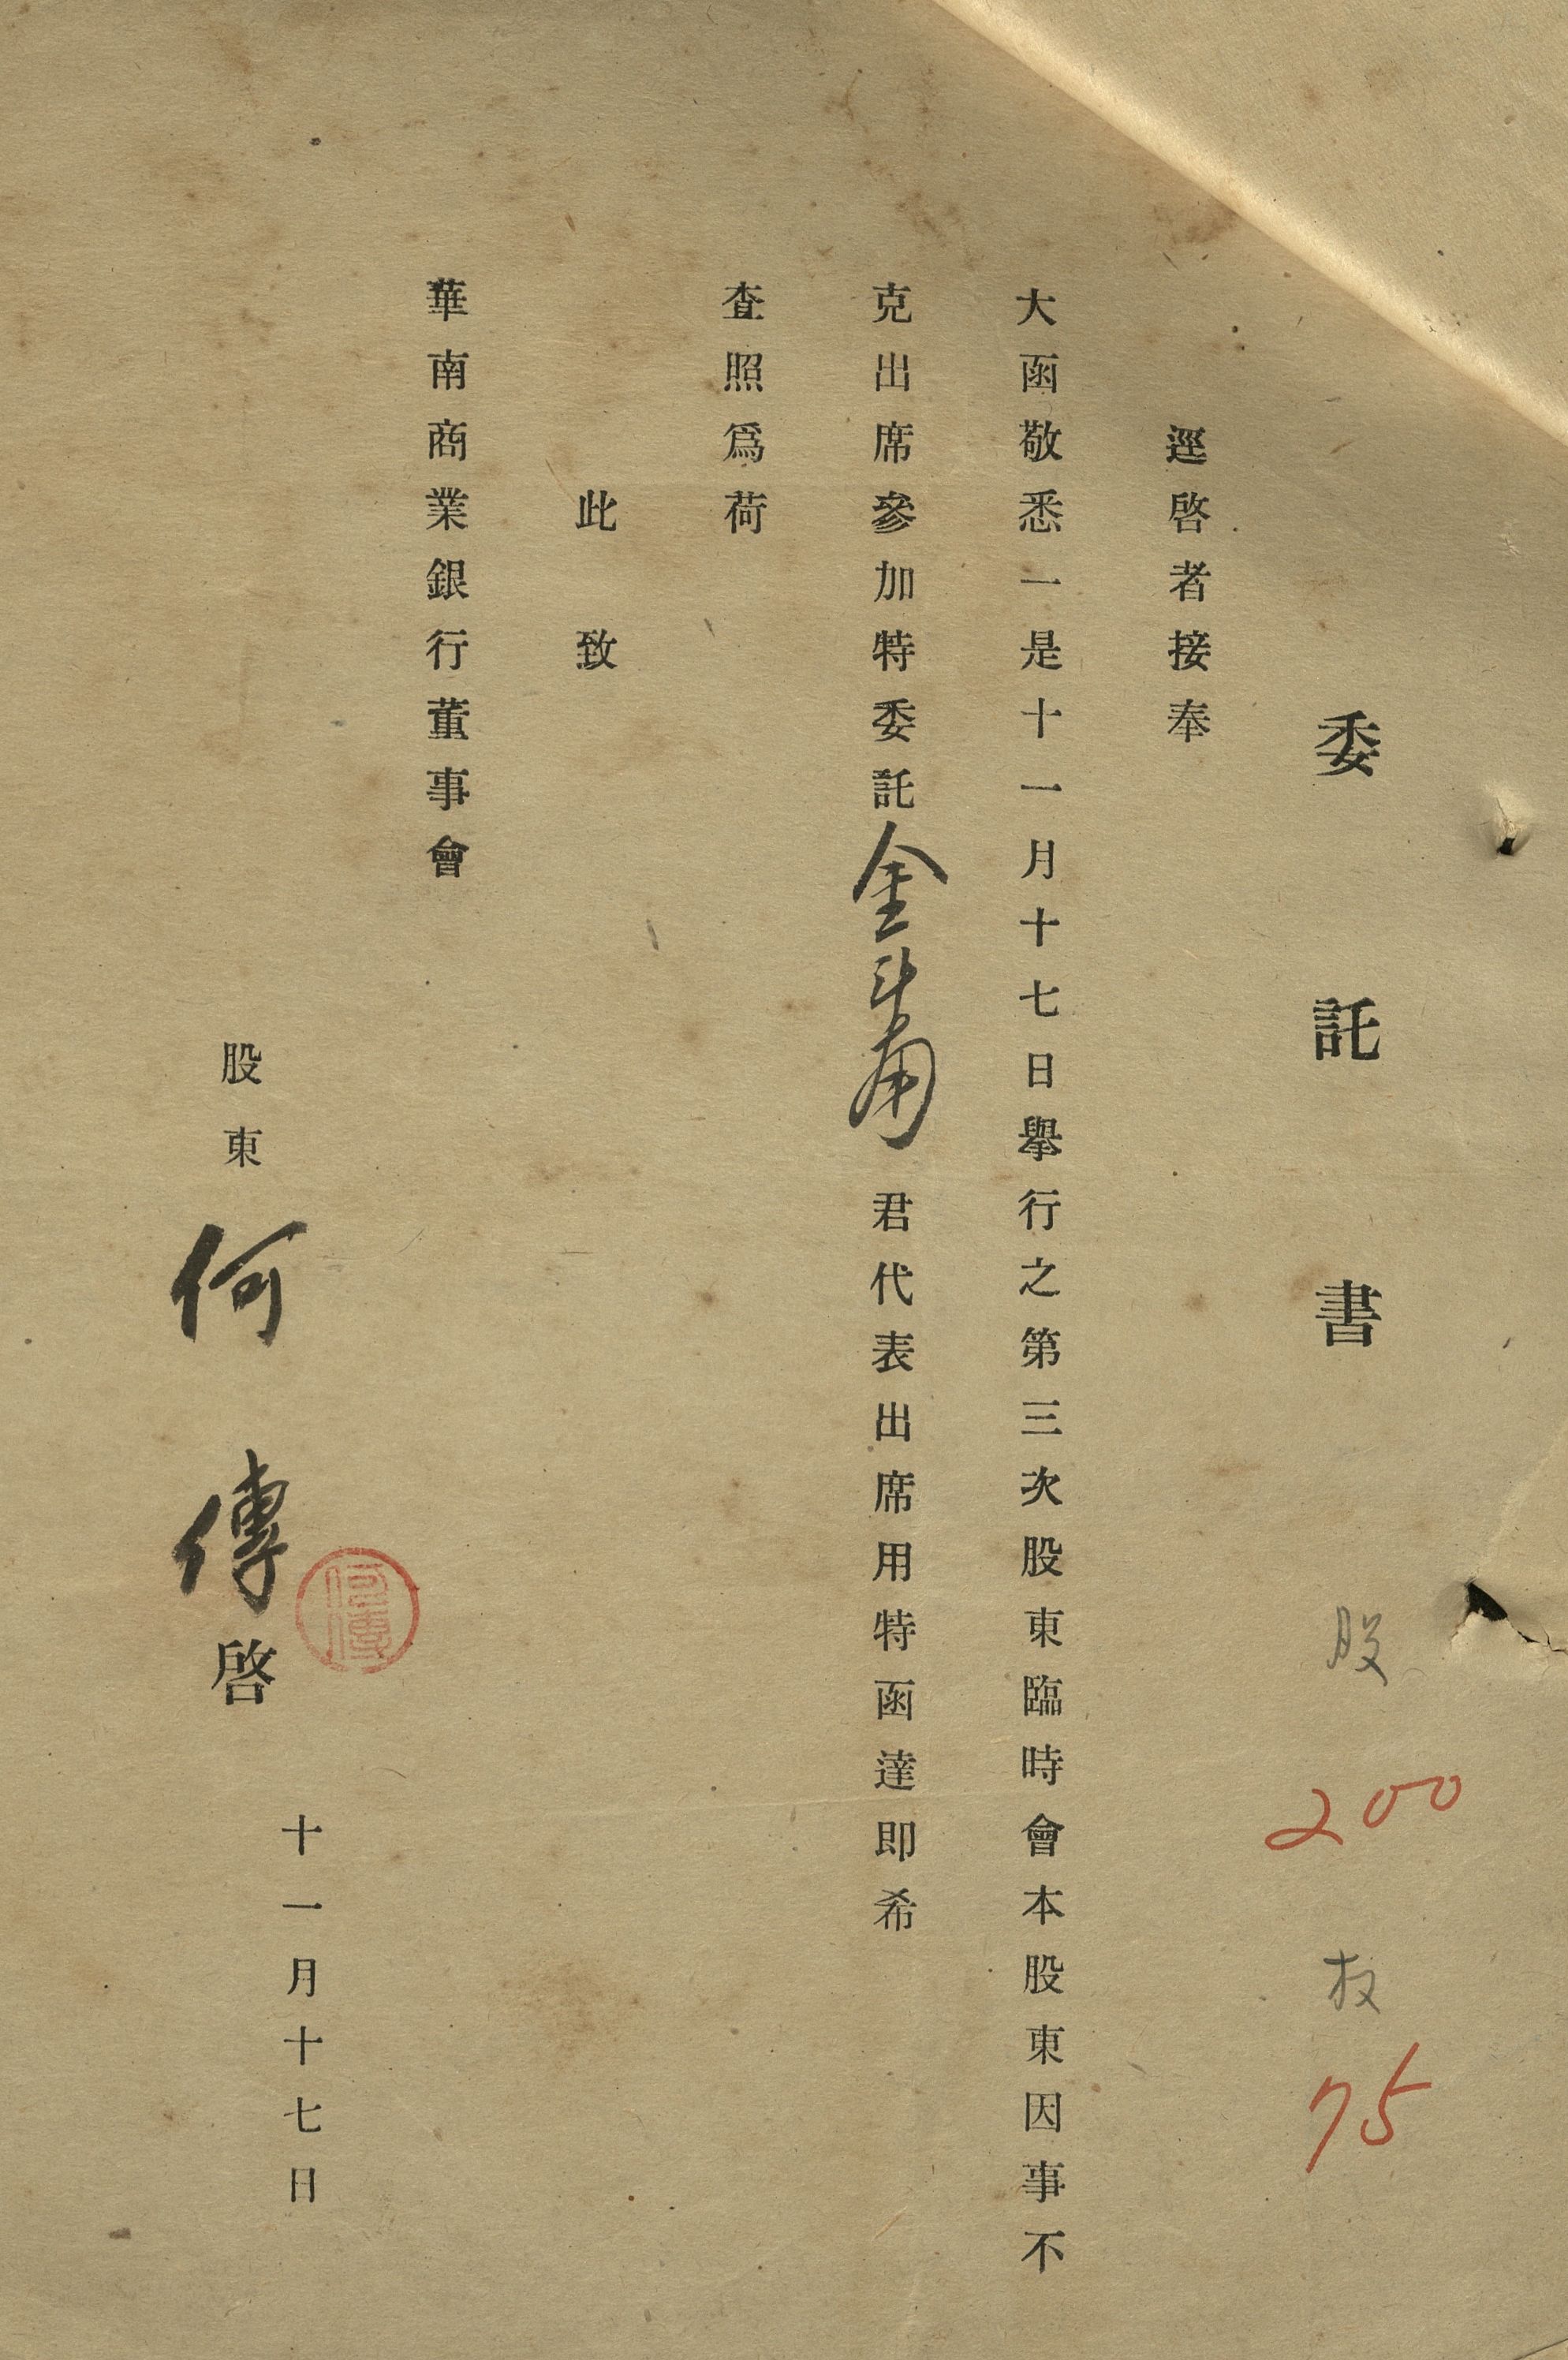 委託書
股 200 权 75
逕啓者接奉
大函敬悉一是十一月十七日舉行之第三次股東臨時會本股東因事不
克出席參加特委託金斗 君代表出席用特函達即希
查照爲荷
此致
華南商業銀行董事會
股東 何傳 啓
何傳
十一月十七日